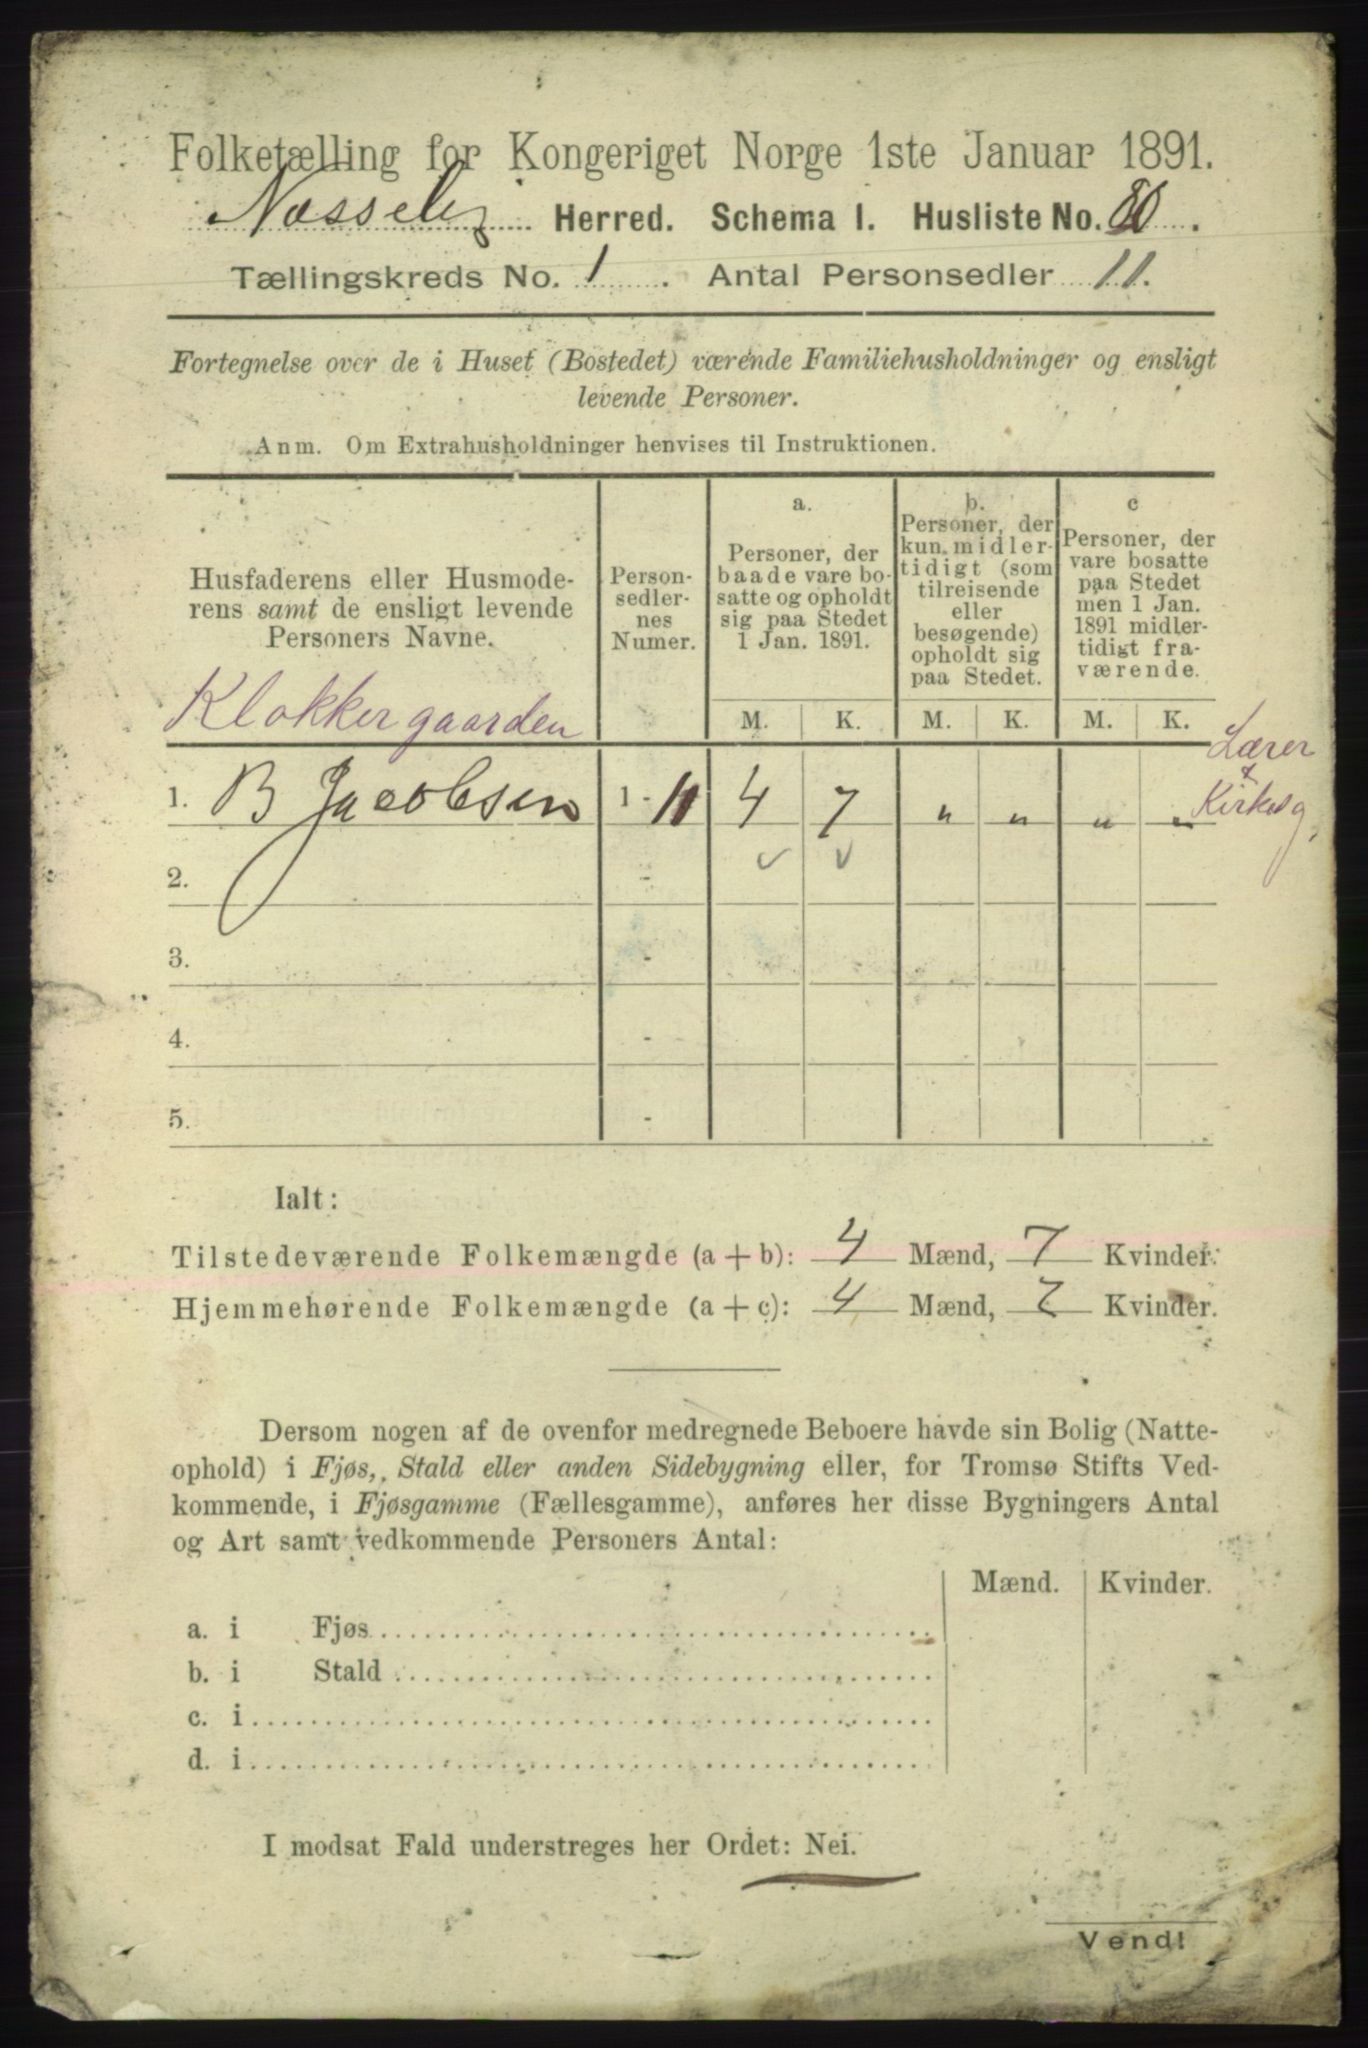 Folketælling for Kongeriget Norge 1ste Januar 1891.
Næsseby Herred. Schema I. Husliste No. 80.
Tællingskreds No. 1. Antal Personsedler 11.
Fortegnelse over de i Huset (Bostedet) værende Familiehusholdninger og ensligt
levende Personer.
Anm. Om Extrahusholdninger henvises til Instruktionen.
Husfaderens eller Husmode-
rens samt de ensligt levende
Personers Navne.
Klokkergaarden
Person-
sedler-
nes
Numer.
a.
Personer, der
baade vare bo-
satte og opholdt
sig paa Stedet
1 Jan. 1891.
b.
Personer, der
kun midler-
tidigt (som
tilreisende
eller
besøgende)
opholdt sig
paa Stedet.
c
Personer, der
vare bosatte
paa Stedet
men 1 Jan.
1891 midler-
tidigt fra-
værende.
M. K. M. K. M. K.
Lærer
&
Kirkesg.
1. B Jacobsen 1 - 11 4 7 " " " "
2. -
3. -
4. -
5. -
Ialt:
Tilstedeværende Folkemængde (a + b): 4 Mænd, 7 Kvinder.
Hjemmehørende Folkemængde (a + c): 4 Mænd, 7 Kvinder.
Dersom nogen af de ovenfor medregnede Beboere havde sin Bolig (Natte-
ophold) i Fjøs, Stald eller anden Sidebygning eller, for Tromsø Stifts Ved-
kommende, i Fjøsgamme (Fællesgamme), anføres her disse Bygningers Antal
og Art samt vedkommende Personers Antal:
Mænd. Kvinder.
a. i Fjøs
b. i Stald
c. i
d. i
I modsat Fald understreges her Ordet: Nei.
Vend!